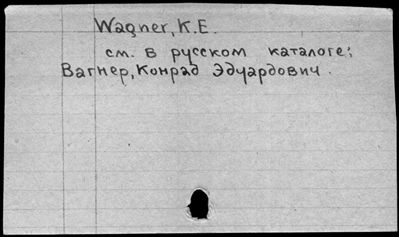 Wagner, K.E.
см. в русском каталоге:
Вагнер, Конрад Эдуардович.